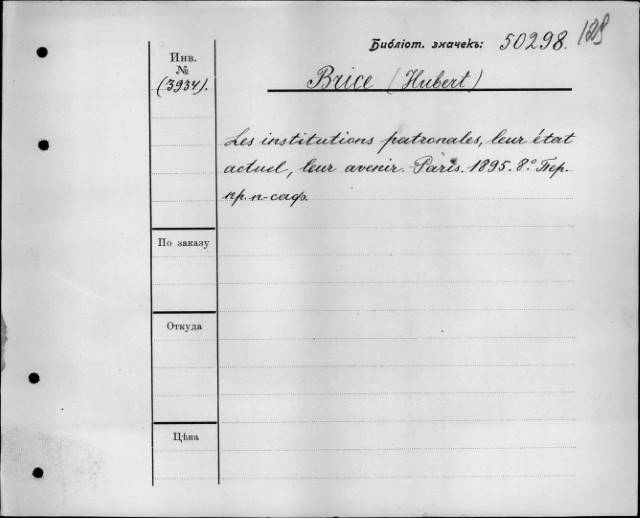 Библіот. значекъ: 50298. 128
Инв.
№
(3934).
Brice (Hubert)
Les institutions patronales, leur état
actuel, leur avenir. Paris. 1895. 8.° Пер.
кр. п-саф.
По заказу
Откуда
Цѣна